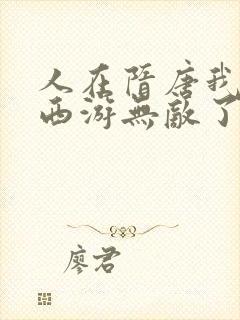 人在隋唐我
西游無敵了
廖君